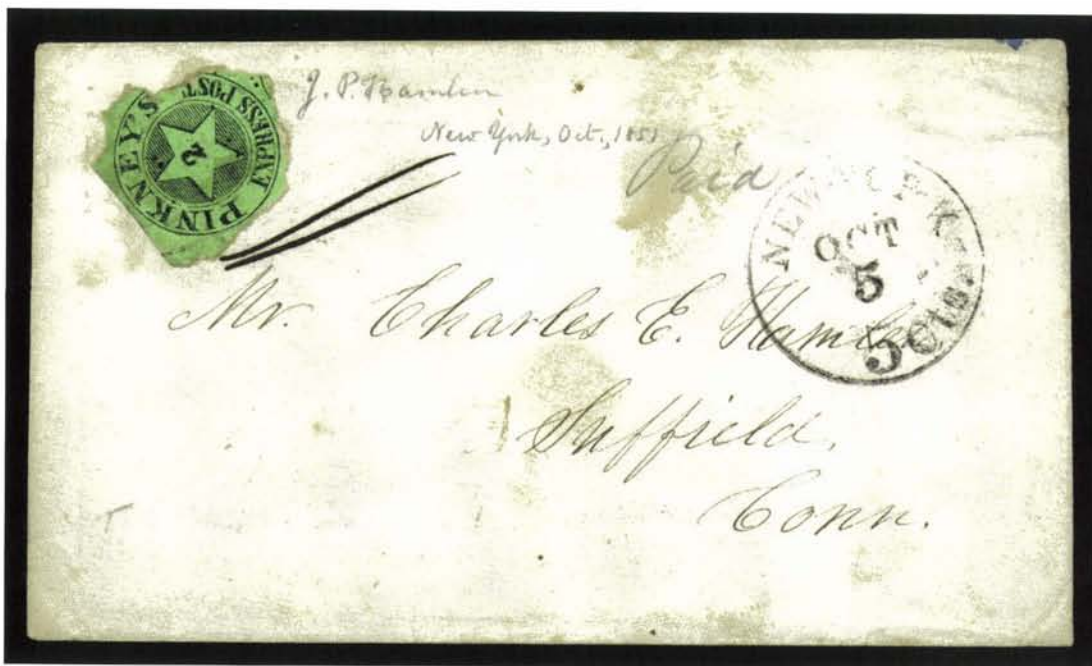 PINKNEY'S EXPRESS POST
2
J. P. Hamlen
New York, Oct., 1851
Paid
NEW-YORK
OCT
5
5 cts.
Mr. Charles E. Hamlen
Suffield,
Conn.